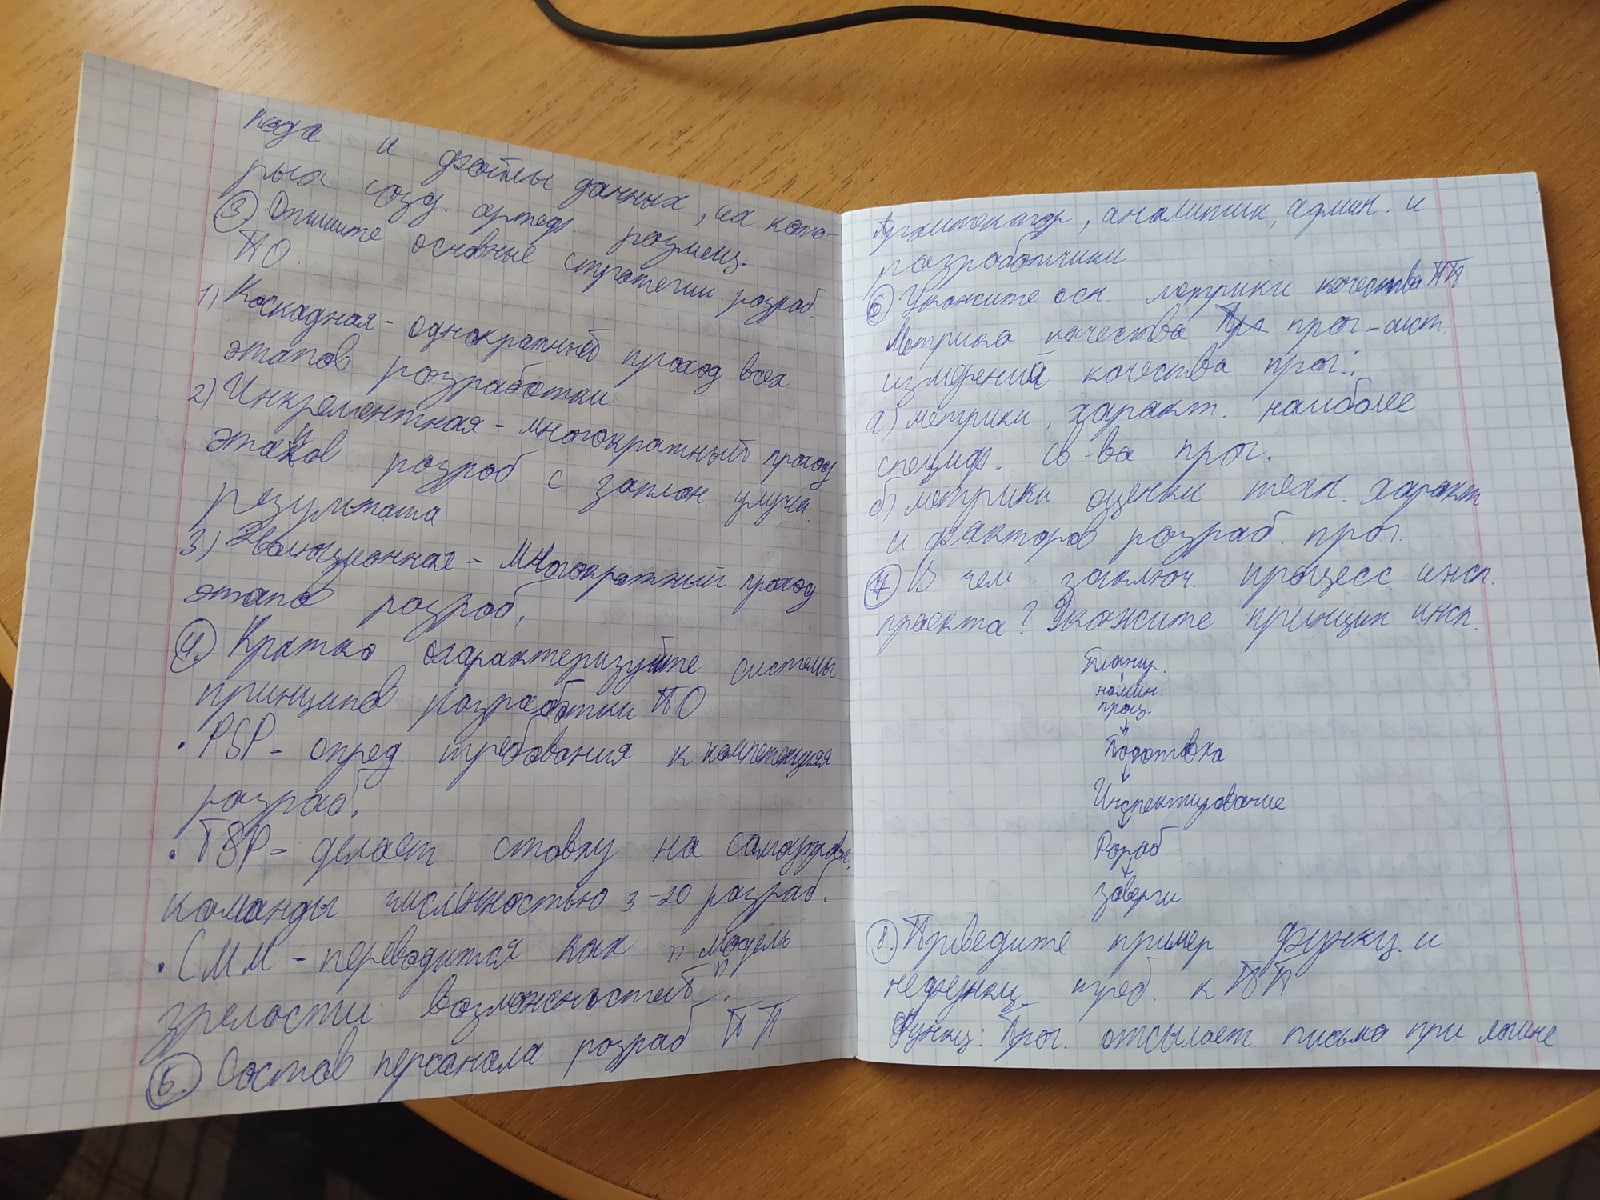 кода и файлы данных, из кото-
рых созд. артеф. размещ.
3) Опишите основные стратегии разраб.
ПО.
1) Каскадная - однократный проход всех
этапов разработки
2) Инкрементная - многократный проход
этапов разраб с заплан. улучш.
результата
3) Эволюционная - многократный проход
этапов разраб.
4) Кратко охарактеризуйте системы
принципов разработки ПО
• PSP - опред требования к компетенциям
разраб.
• TSP - делает ставку на самоуправл.
команды численностью 3-20 разраб.
• СММ - переводится как "модель
зрелости возможностей".
5. Состав персонала разраб ПП
Архитектор, аналитик, админ. и
разработчики
6) Укажите осн. метрики качества ПП
Метрика качества прог - сист.
измерений качества прог.:
а) метрики, характ. наиболее
специф. св-ва прог.
б) метрики оценки техн. характ
и факторов разраб. прог.
7) В чем заключ. процесс инсп.
проекта? Укажите принцип инсп.
Планир.
прог.
Подготовка
Инспектирование
Разраб
Заверш
8.) Приведите пример функц. и
нефункц. треб. к ПП
Функц: Прог. отсылает письмо при логине